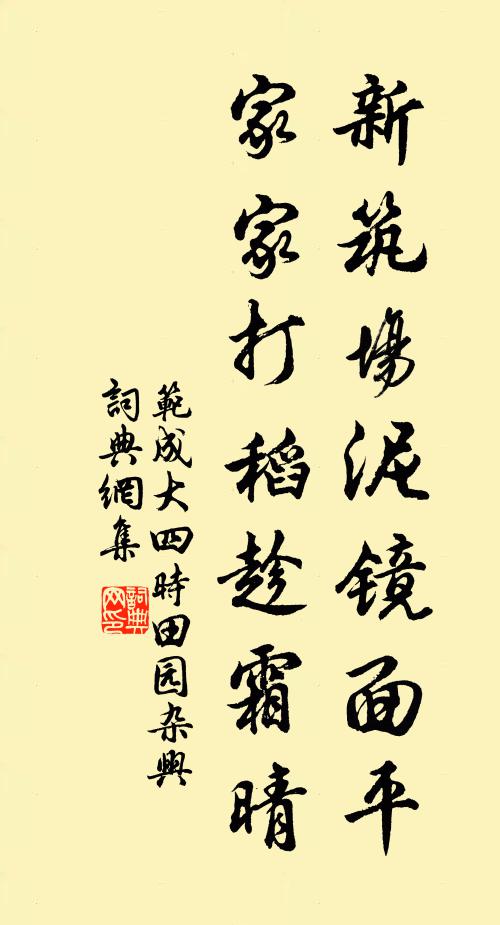 新筑場泥镜面平
家家打稻趁霜晴
範成大四時田园杂興
詞典網集
詞典
网印